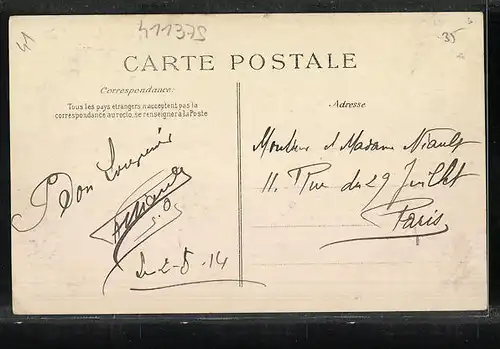 411375
41
35
CARTE POSTALE
Correspondance:
Tous les pays étrangers n'acceptent pas la
correspondance au recto, se renseigner à la Poste
Adresse
Bon Souvenir
Monsieur et Madame Niault
11. Rue du 29 Juillet
Paris